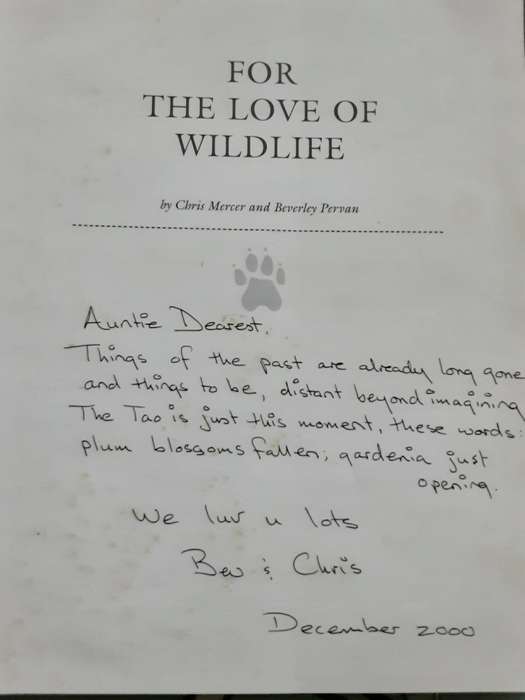 FOR
THE LOVE OF
WILDLIFE
by Chris Mercer and Beverley Pervan
Auntie Dearest,
Things of the past are already long gone
and things to be, distant beyond imagining
The Tao is just this moment, these words:
plum blossoms fallen; gardenia just
opening.
We luv u lots
Bev & Chris
December 2000